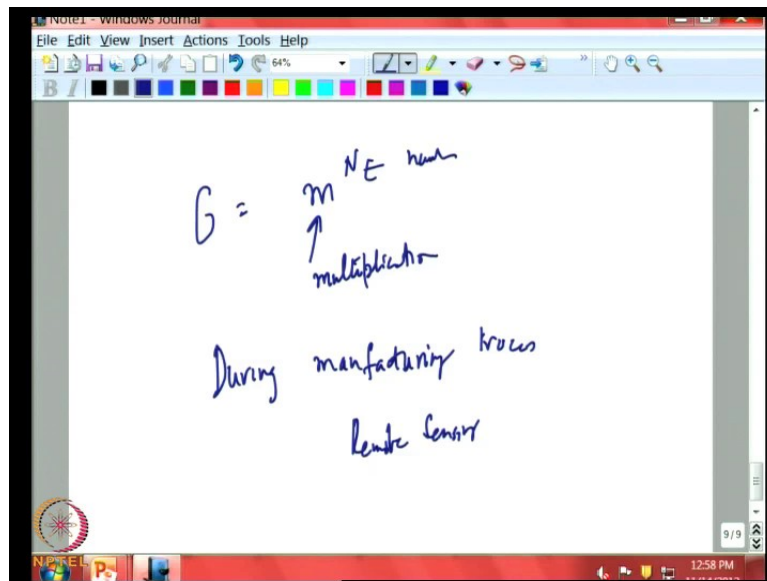 Note1 - Windows Journal
File Edit View Insert Actions Tools Help
64%
B I
G = m^NE
multiplication
During manfacturing
Remote Sensing
9/9
NPTEL
12:58 PM